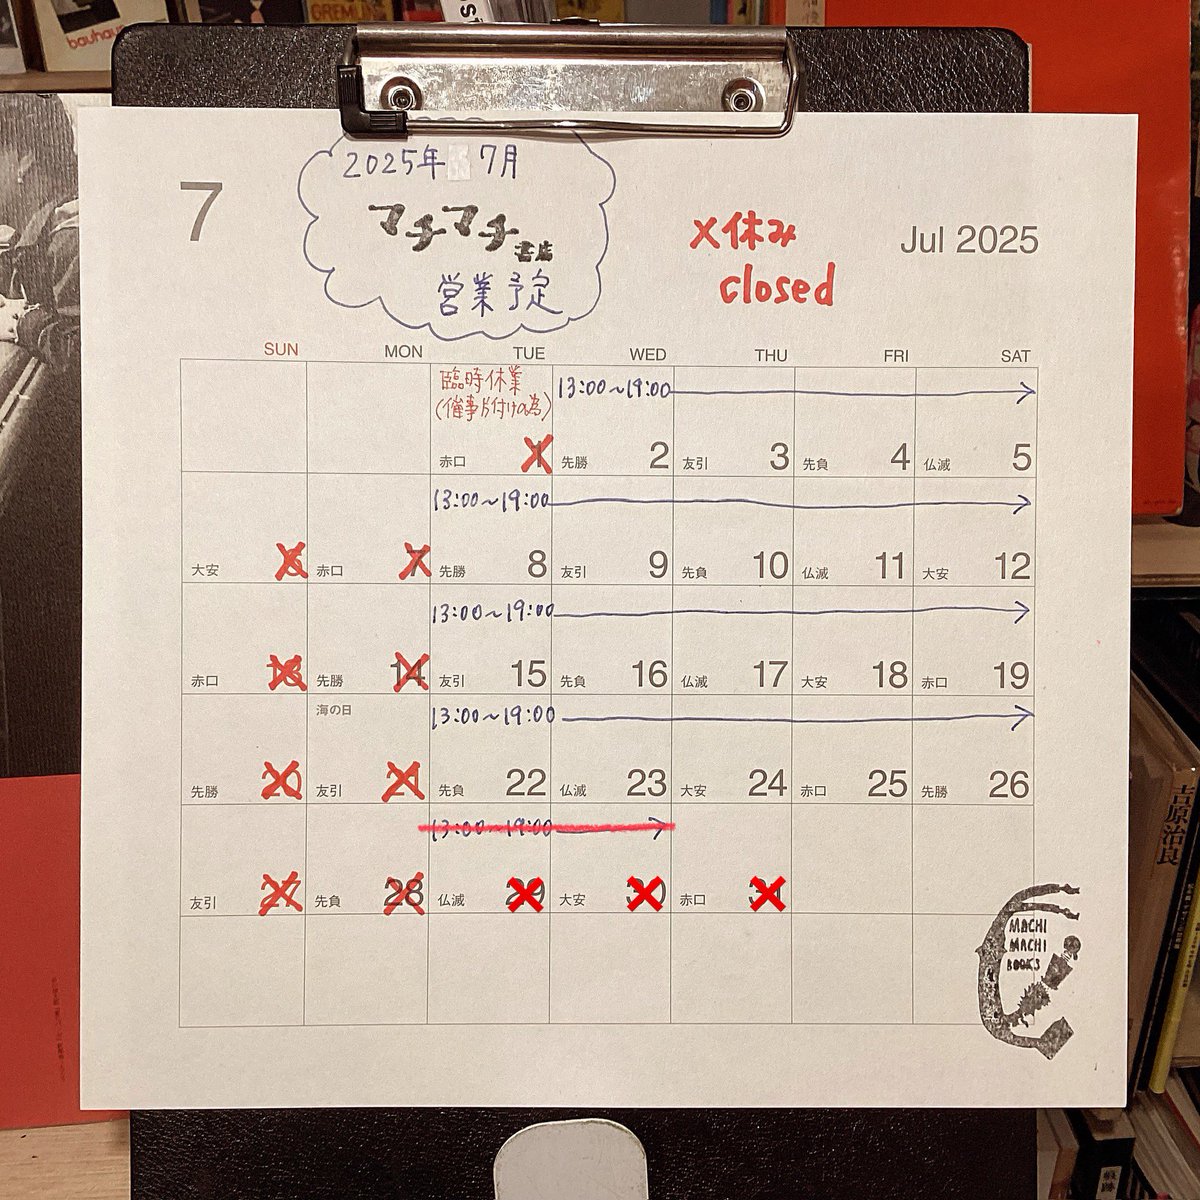 bauhaus
GREMLI
2025年 7月
マチマチ書店
営業予定
7
×休み
closed
Jul 2025
SUN MON TUE WED THU FRI SAT
臨時休業
(催事片付けの為)
13:00～19:00
赤口 1 先勝 2 友引 3 先負 4 仏滅 5
13:00～19:00
大安 6 赤口 7 先勝 8 友引 9 先負 10 仏滅 11 大安 12
13:00～19:00
赤口 13 先勝 14 友引 15 先負 16 仏滅 17 大安 18 赤口 19
海の日
13:00～19:00
先勝 20 友引 21 先負 22 仏滅 23 大安 24 赤口 25 先勝 26
13:00～19:00
友引 27 先負 28 仏滅 29 大安 30 赤口 31
MACHI
MACHI
BOOKS
吉原治良